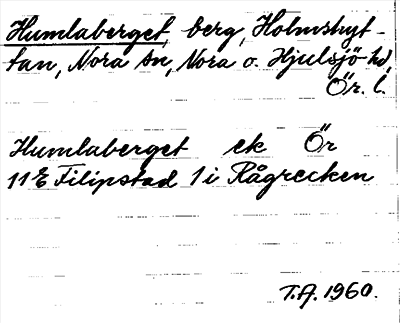 Humlaberget, berg, Holmshyt-
tan, Nora sn, Nora o. Hjulsjö hd,
Ör. l.
Humlaberget ek Ör
11 E Filipstad 1 i Rågrecken
T.A. 1960.